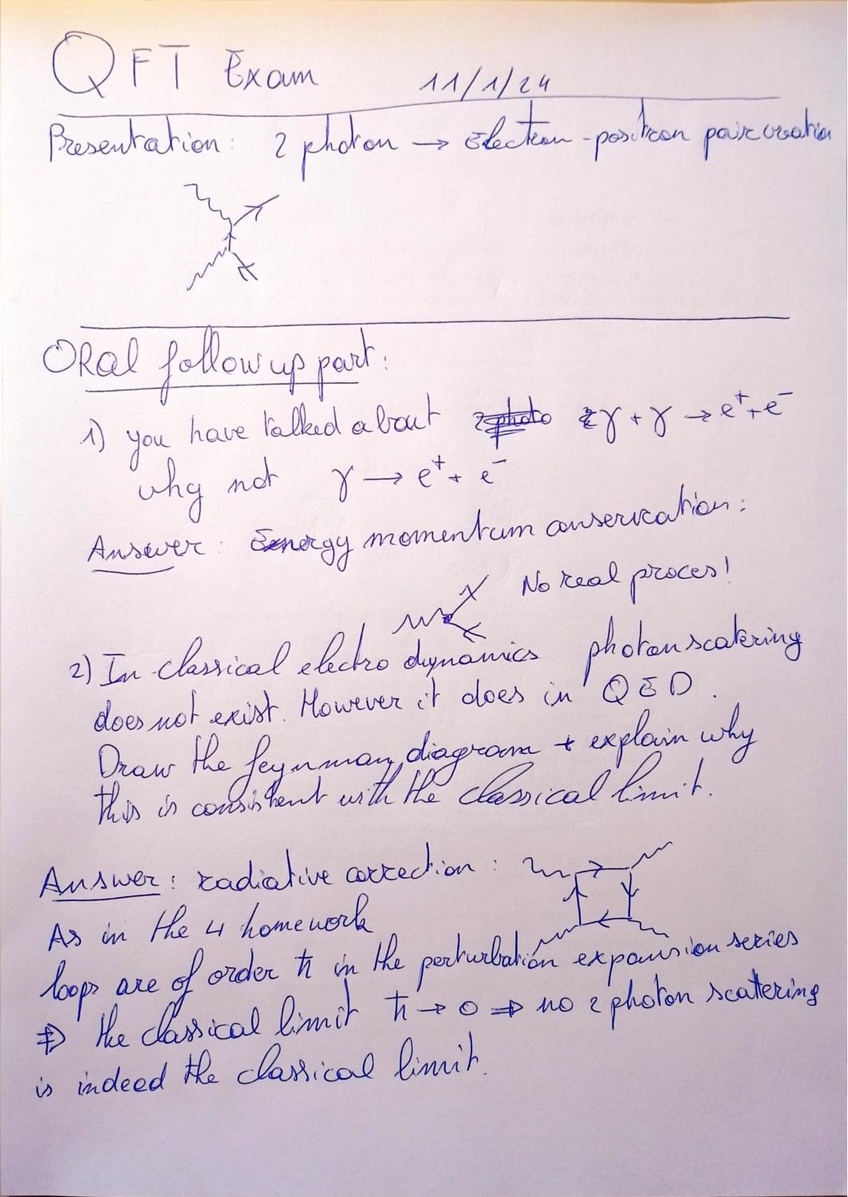 QFT Exam 11/1/24
Presentation: 2 photon → Electron-positron pair creation
Oral follow up part:
1) you have talked about γ + γ → e⁺ + e⁻
why not γ → e⁺ + e⁻
Answer: Energy momentum conservation:
No real proces!
2) In classical electro dynamics photon scatering
does not exist. However it does in QED.
Draw the feynman diagram + explain why
this is consistent with the classical limit.
Answer: radiative correction:
As in the 4 homework
loops are of order ħ in the perturbation expansion series
⇒ the classical limit ħ → 0 ⇒ no 2 photon scattering
is indeed the classical limit.